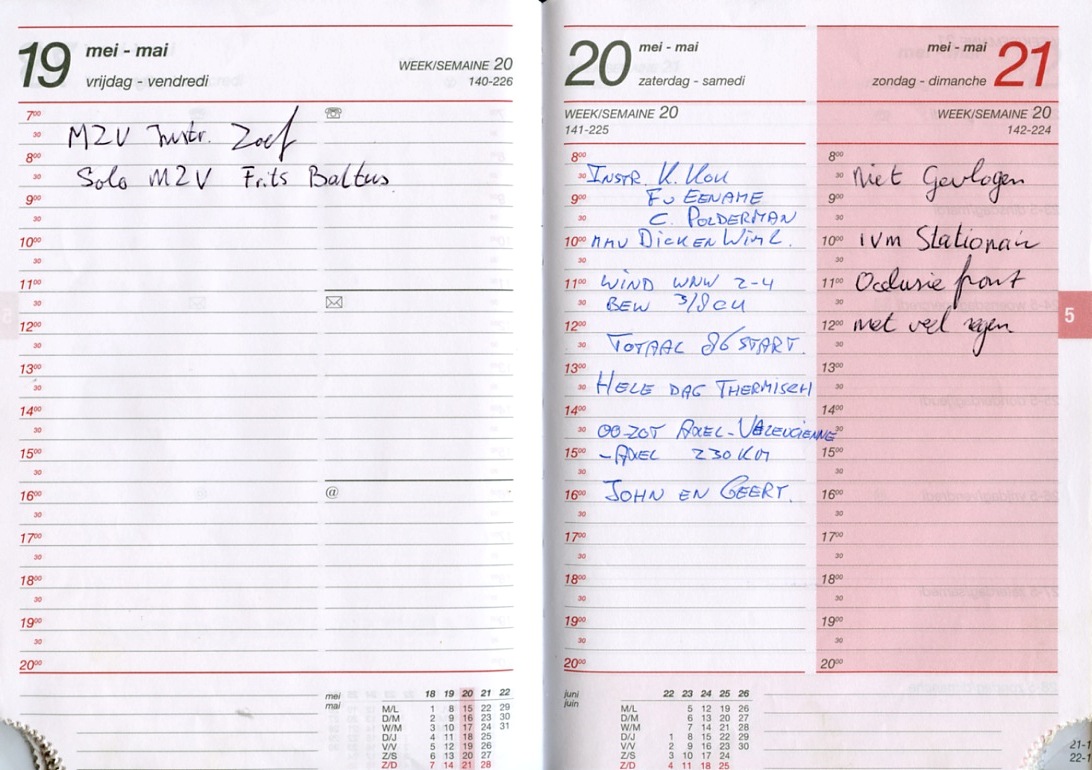 19 mei - mai
vrijdag - vendredi
WEEK/SEMAINE 20
140-226
7⁰⁰
30 MZV Instr. Zoef
8⁰⁰
30 Solo MZV Frits Baltus
9⁰⁰
30
10⁰⁰
30
11⁰⁰
30
12⁰⁰
30
13⁰⁰
30
14⁰⁰
30
15⁰⁰
30
16⁰⁰ @
30
17⁰⁰
30
18⁰⁰
30
19⁰⁰
30
20⁰⁰
mei 18 19 20 21 22
mai
M/L 1 8 15 22 29
D/M 2 9 16 23 30
W/M 3 10 17 24 31
D/J 4 11 18 25
V/V 5 12 19 26
Z/S 6 13 20 27
Z/D 7 14 21 28
20 mei - mai
zaterdag - samedi
WEEK/SEMAINE 20
141-225
8⁰⁰
30 INSTR. K. KOU
9⁰⁰ EENAME
30 C. POLDERMAN
10⁰⁰ DICK EN WIM
30
11⁰⁰ WIND WNW 2-4
30 BEW 3/8 CU
12⁰⁰
30 TOTAAL 86 START.
13⁰⁰
30 HELE DAG THERMISCH
14⁰⁰
30 OO-ZOT AXEL-VALENCIENNE
15⁰⁰ -AXEL 230 KM
30
16⁰⁰ JOHN EN GEERT.
30
17⁰⁰
30
18⁰⁰
30
19⁰⁰
30
20⁰⁰
juni 22 23 24 25 26
juin
M/L 5 12 19 26
D/M 6 13 20 27
W/M 7 14 21 28
D/J 1 8 15 22 29
V/V 2 9 16 23 30
Z/S 3 10 17 24
Z/D 4 11 18 25
mei - mai 21
zondag - dimanche
WEEK/SEMAINE 20
142-224
8⁰⁰
30 Niet Gevlogen
9⁰⁰
30
10⁰⁰ ivm Stationair
30
11⁰⁰ Occlusie front
30
12⁰⁰ met veel regen
30
13⁰⁰
30
14⁰⁰
30
15⁰⁰
30
16⁰⁰
30
17⁰⁰
30
18⁰⁰
30
19⁰⁰
30
20⁰⁰
5